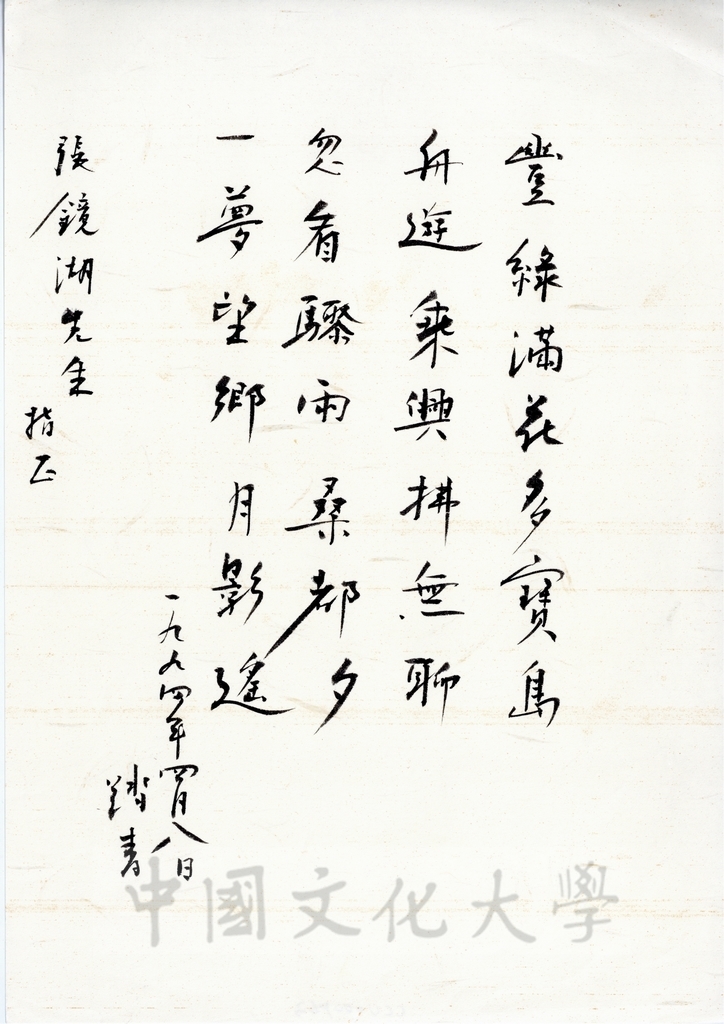 豐綠滿花多寶島
舟遊乘興拂無聊
忽看驟雨桑都夕
一夢望鄉月影遙
一九九四年四月八日
踏青
張鏡湖先生
指正
中國文化大學